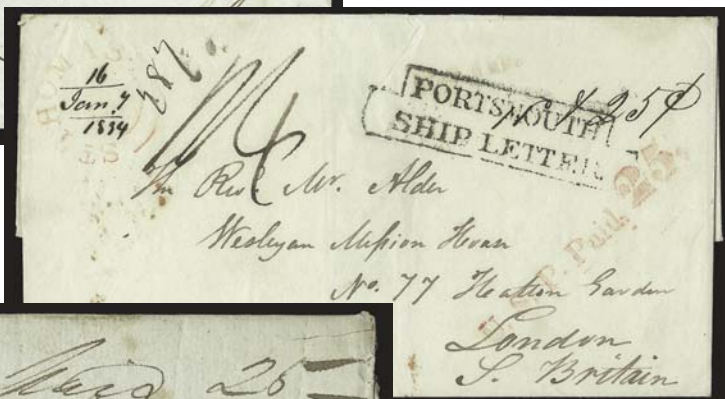 16
Jan 7
1834
PORTSMOUTH
SHIP LETTER
25¢
Paid 25
The Revd. Mr. Alder
Wesleyan Mission House
No. 77 Hatton Garden
London
S. Britain
Paid 25